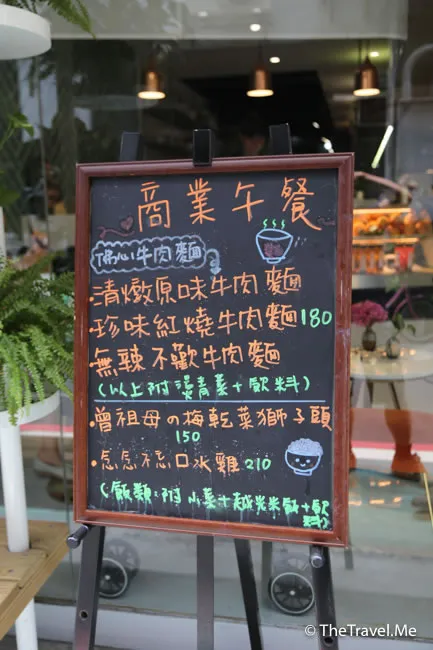 商業午餐
順心牛肉麵
·清燉原味牛肉麵
·珍味紅燒牛肉麵180
·無辣不歡牛肉麵
(以上附燙青菜+飲料)
·曾祖母の梅乾菜獅子頭
150
·念念不忘口水雞 210
(飯類:附小菜+越光米飯+飲料)
© TheTravel.Me